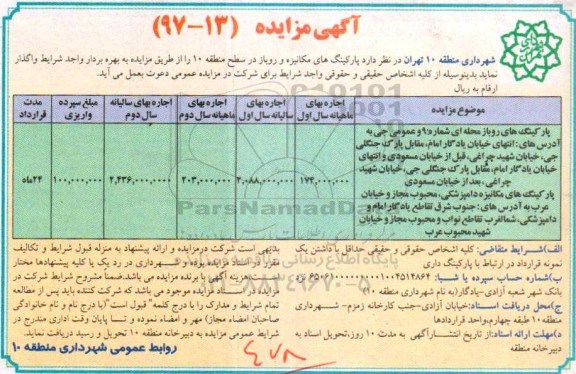 آگهی مزایده (۱۳-۹۷)
شهرداری منطقه ۱۰ تهران در نظر دارد پارکینگ های مکانیزه و روباز در سطح منطقه ۱۰ را از طریق مزایده به بهره بردار واجد شرایط واگذار
نماید بدینوسیله از کلیه اشخاص حقیقی و حقوقی واجد شرایط برای شرکت در مزایده عمومی دعوت بعمل می آید.
ارقام به ریال
موضوع مزایده
اجاره بهای ماهیانه سال اول
اجاره بهای سالیانه سال اول
اجاره بهای ماهیانه سال دوم
اجاره بهای سالیانه سال دوم
مبلغ سپرده واریزی
مدت قرارداد
پارکینگ های روباز محله ای شماره ۹ و عمومی جی به
آدرس های: انتهای خیابان یادگار امام، مقابل پارک جنگلی
جی، خیابان شهید چراغی، قبل از خیابان مسعودی و انتهای
خیابان یادگار امام، مقابل پارک جنگلی جی، خیابان شهید
چراغی، بعد از خیابان مسعودی
پارکینگ های مکانیزه دامپزشکی، محبوب مجاز و خیابان
عرب به آدرس های: جنوب شرق تقاطع یادگار امام و
دامپزشکی، شمالغرب تقاطع نواب و محبوب مجاز و خیابان
شهید محبوب عرب
۱۷۴,۰۰۰,۰۰۰
۲,۰۸۸,۰۰۰,۰۰۰
۲۰۳,۰۰۰,۰۰۰
۲,۴۳۶,۰۰۰,۰۰۰
۱۰۰,۰۰۰,۰۰۰
۲۴ماه
الف)شرایط متقاضی: کلیه اشخاص حقوقی و حقیقی حداقل با داشتن یک
نمونه قرارداد در ارتباط با پارکینگ داری
ب)شماره حساب سپرده یا شبا:
بانک شهر شعبه آزادی-یادگار(به نام شهرداری منطقه ۱۰)
ج)محل دریافت اسناد:خیابان آزادی-جنب کارخانه زمزم- شهرداری
منطقه ۱۰ طبقه چهارم،واحد قراردادها
د)مهلت ارائه اسناد:از تاریخ انتشار آگهی به مدت ۱۰ روز،تحویل اسناد به
دبیرخانه منطقه
بدیهی است شرکت در مزایده و ارائه پیشنهاد به منزله قبول شرایط و تکالیف
مقرر شده میباشد و شهرداری در رد یک یا کلیه پیشنهادها مختار
است. هزینه آگهی با برنده مزایده می باشد.ضمنا مشروح شرایط شرکت در
مزایده در اسناد مزایده موجود می باشد که شرکت کننده باید پس از مطالعه
تمام شرایط و مدارک را با درج کلمه" قبول است"(با درج نام و نام خانوادگی
صاحبان امضاء مجاز) مهر و امضاء نموده و تا پایان وقت اداری مندرج در
شرایط عمومی مزایده به دبیرخانه منطقه ۱۰ تحویل و رسید دریافت نماید.
روابط عمومی شهرداری منطقه ۱۰
۴۷۸
ParsNamadData
پایگاه اطلاع رسانی
۰۲۱-۸۸۳۴۹۶۷۰-۵